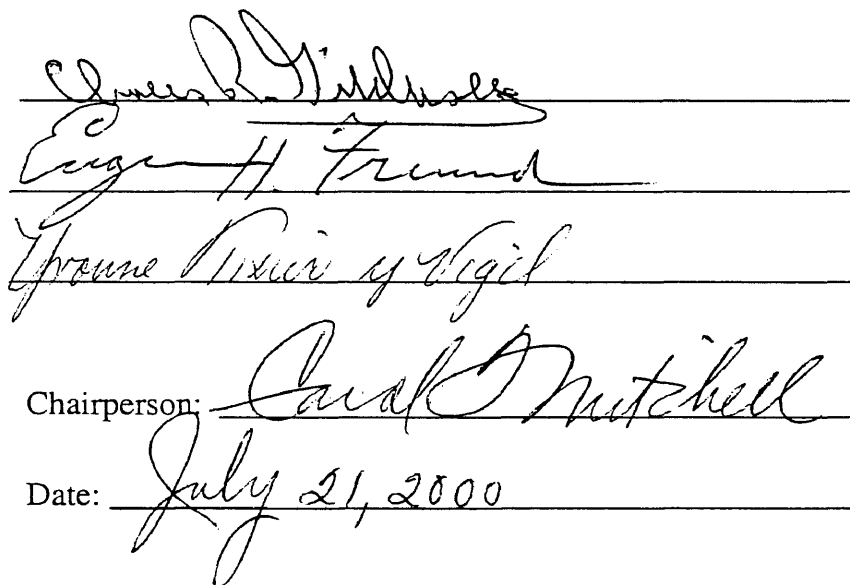 Eugene H. Freund
Yvonne y Vigil
Chairperson: Carol T Mitchell
Date: July 21, 2000